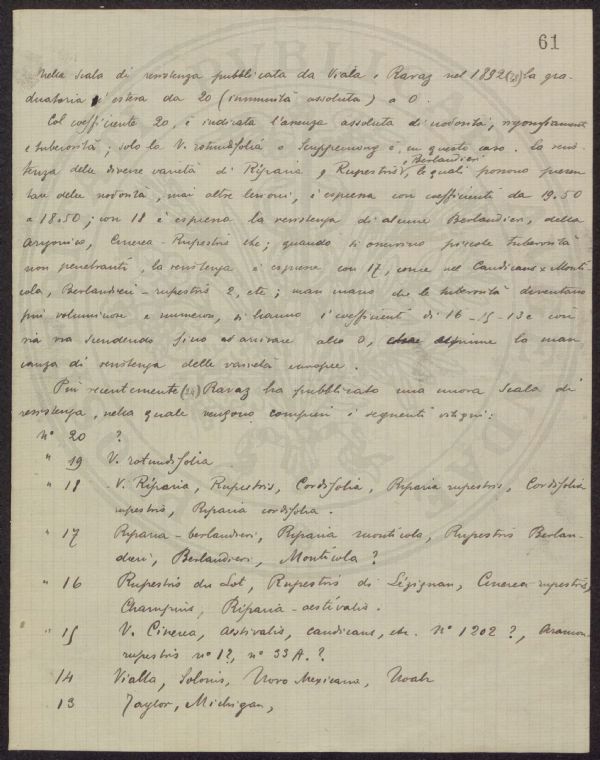 61
Nella Scala di resistenza pubblicata da Viala e Ravaz nel 1892 la gra-
duatoria è estesa da 20 (immunità assoluta) a 0.
Col coefficiente 20, è indicata l'assenza assoluta di nodosità, rigonfiamenti
e tuberosità; solo la V. rotundifolia o Scuppernong è, in questo caso. La resis-
tenza delle diverse varietà di Riparia, Rupestris, e Berlandieri le quali possono presen-
tare delle nodosità, mai altre lesioni, è espressa con coefficienti da 19.50
a 18.50; con 18 è espressa la resistenza di alcune Berlandieri, della
Arizonica, Cinerea-Rupestris etc; quando si osservino piccole tuberosità
non penetranti, la resistenza è espressa con 17, come nel Candicans x Monti-
cola, Berlandieri-rupestris 2, etc; man mano che le tuberosità diventano
più voluminose e numerose, si hanno i coefficienti di 16-15-13 e così
via via scendendo fino ad arrivare allo 0, che esprime la man
canza di resistenza delle varietà europee.
Più recentemente Ravaz ha pubblicato una nuova Scala di
resistenza, nella quale vengono compresi i seguenti vitigni:
N° 20 ?
" 19 V. rotundifolia
" 18 V. Riparia, Rupestris, Cordifolia, Riparia rupestris, Cordifolia
rupestris, Riparia cordifolia.
" 17 Riparia-berlandieri, Riparia monticola, Rupestris Berlan-
dieri, Berlandieri, Monticola?
" 16 Rupestris du Lot, Rupestris di Lézignan, Cinerea rupestris,
Champins, Riparia-aestivalis.
" 15 V. Cinerea, aestivalis, candicans, etc. N° 1202?, Aramon
rupestris n° 1?, n° 33 A.?
14 Vialla, Solonis, Novo Mexicana, Noah
13 Taylor, Michigan,